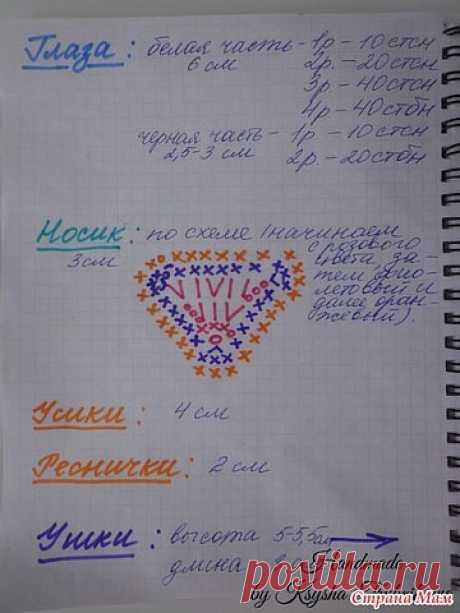 Глаза: белая часть - 1р - 10 стсн
6 см 2р. - 20 стсн
3р - 40 стсн
4р - 40 стбн
черная часть - 1р - 10 стсн
2,5-3 см 2р. - 20 стбн
Носик: по схеме (начинаем
3 см с розового
цвета, за-
тем фио-
летовый и
далее оран-
жевый).
Усики: 4 см
Реснички: 2 см
Ушки: высота 5-5,5 см
длина
Handmade
by Ksysha
Страна Мам
postila.ru